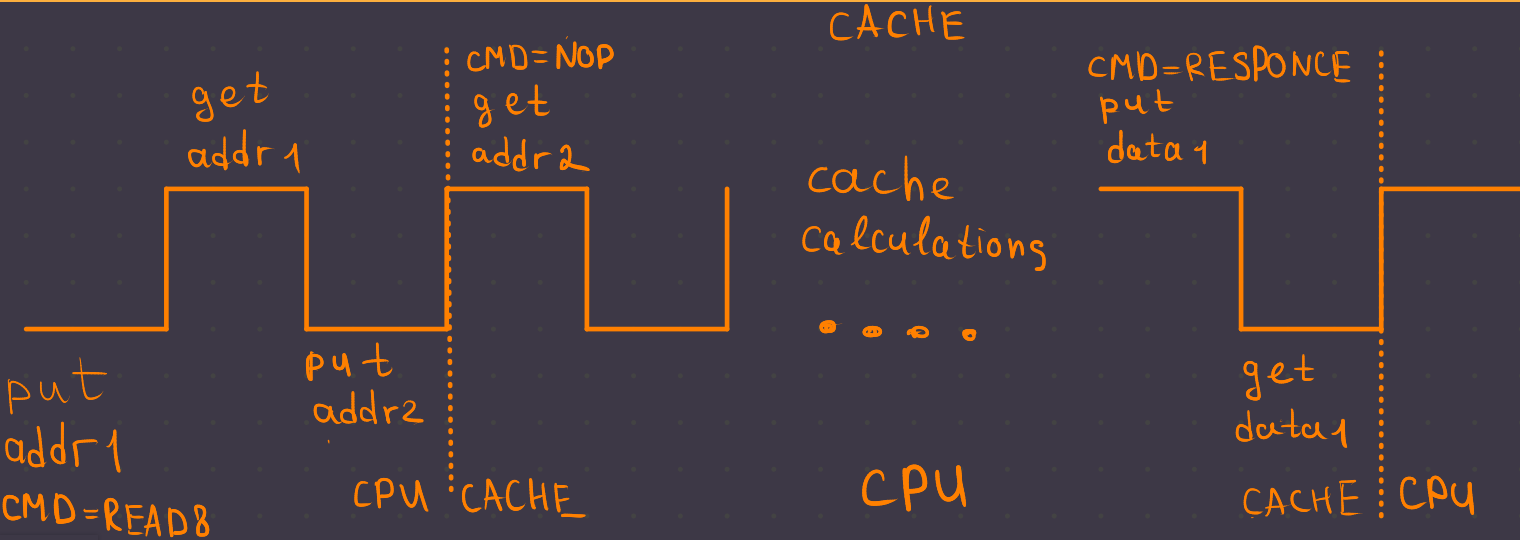 CACHE
get
addr1
CMD=NOP
get
addr2
cache
calculations
CMD=RESPONCE
put
data1
put
addr1
CMD=READ8
put
addr2
CPU
CACHE
CPU
get
data1
CACHE
CPU